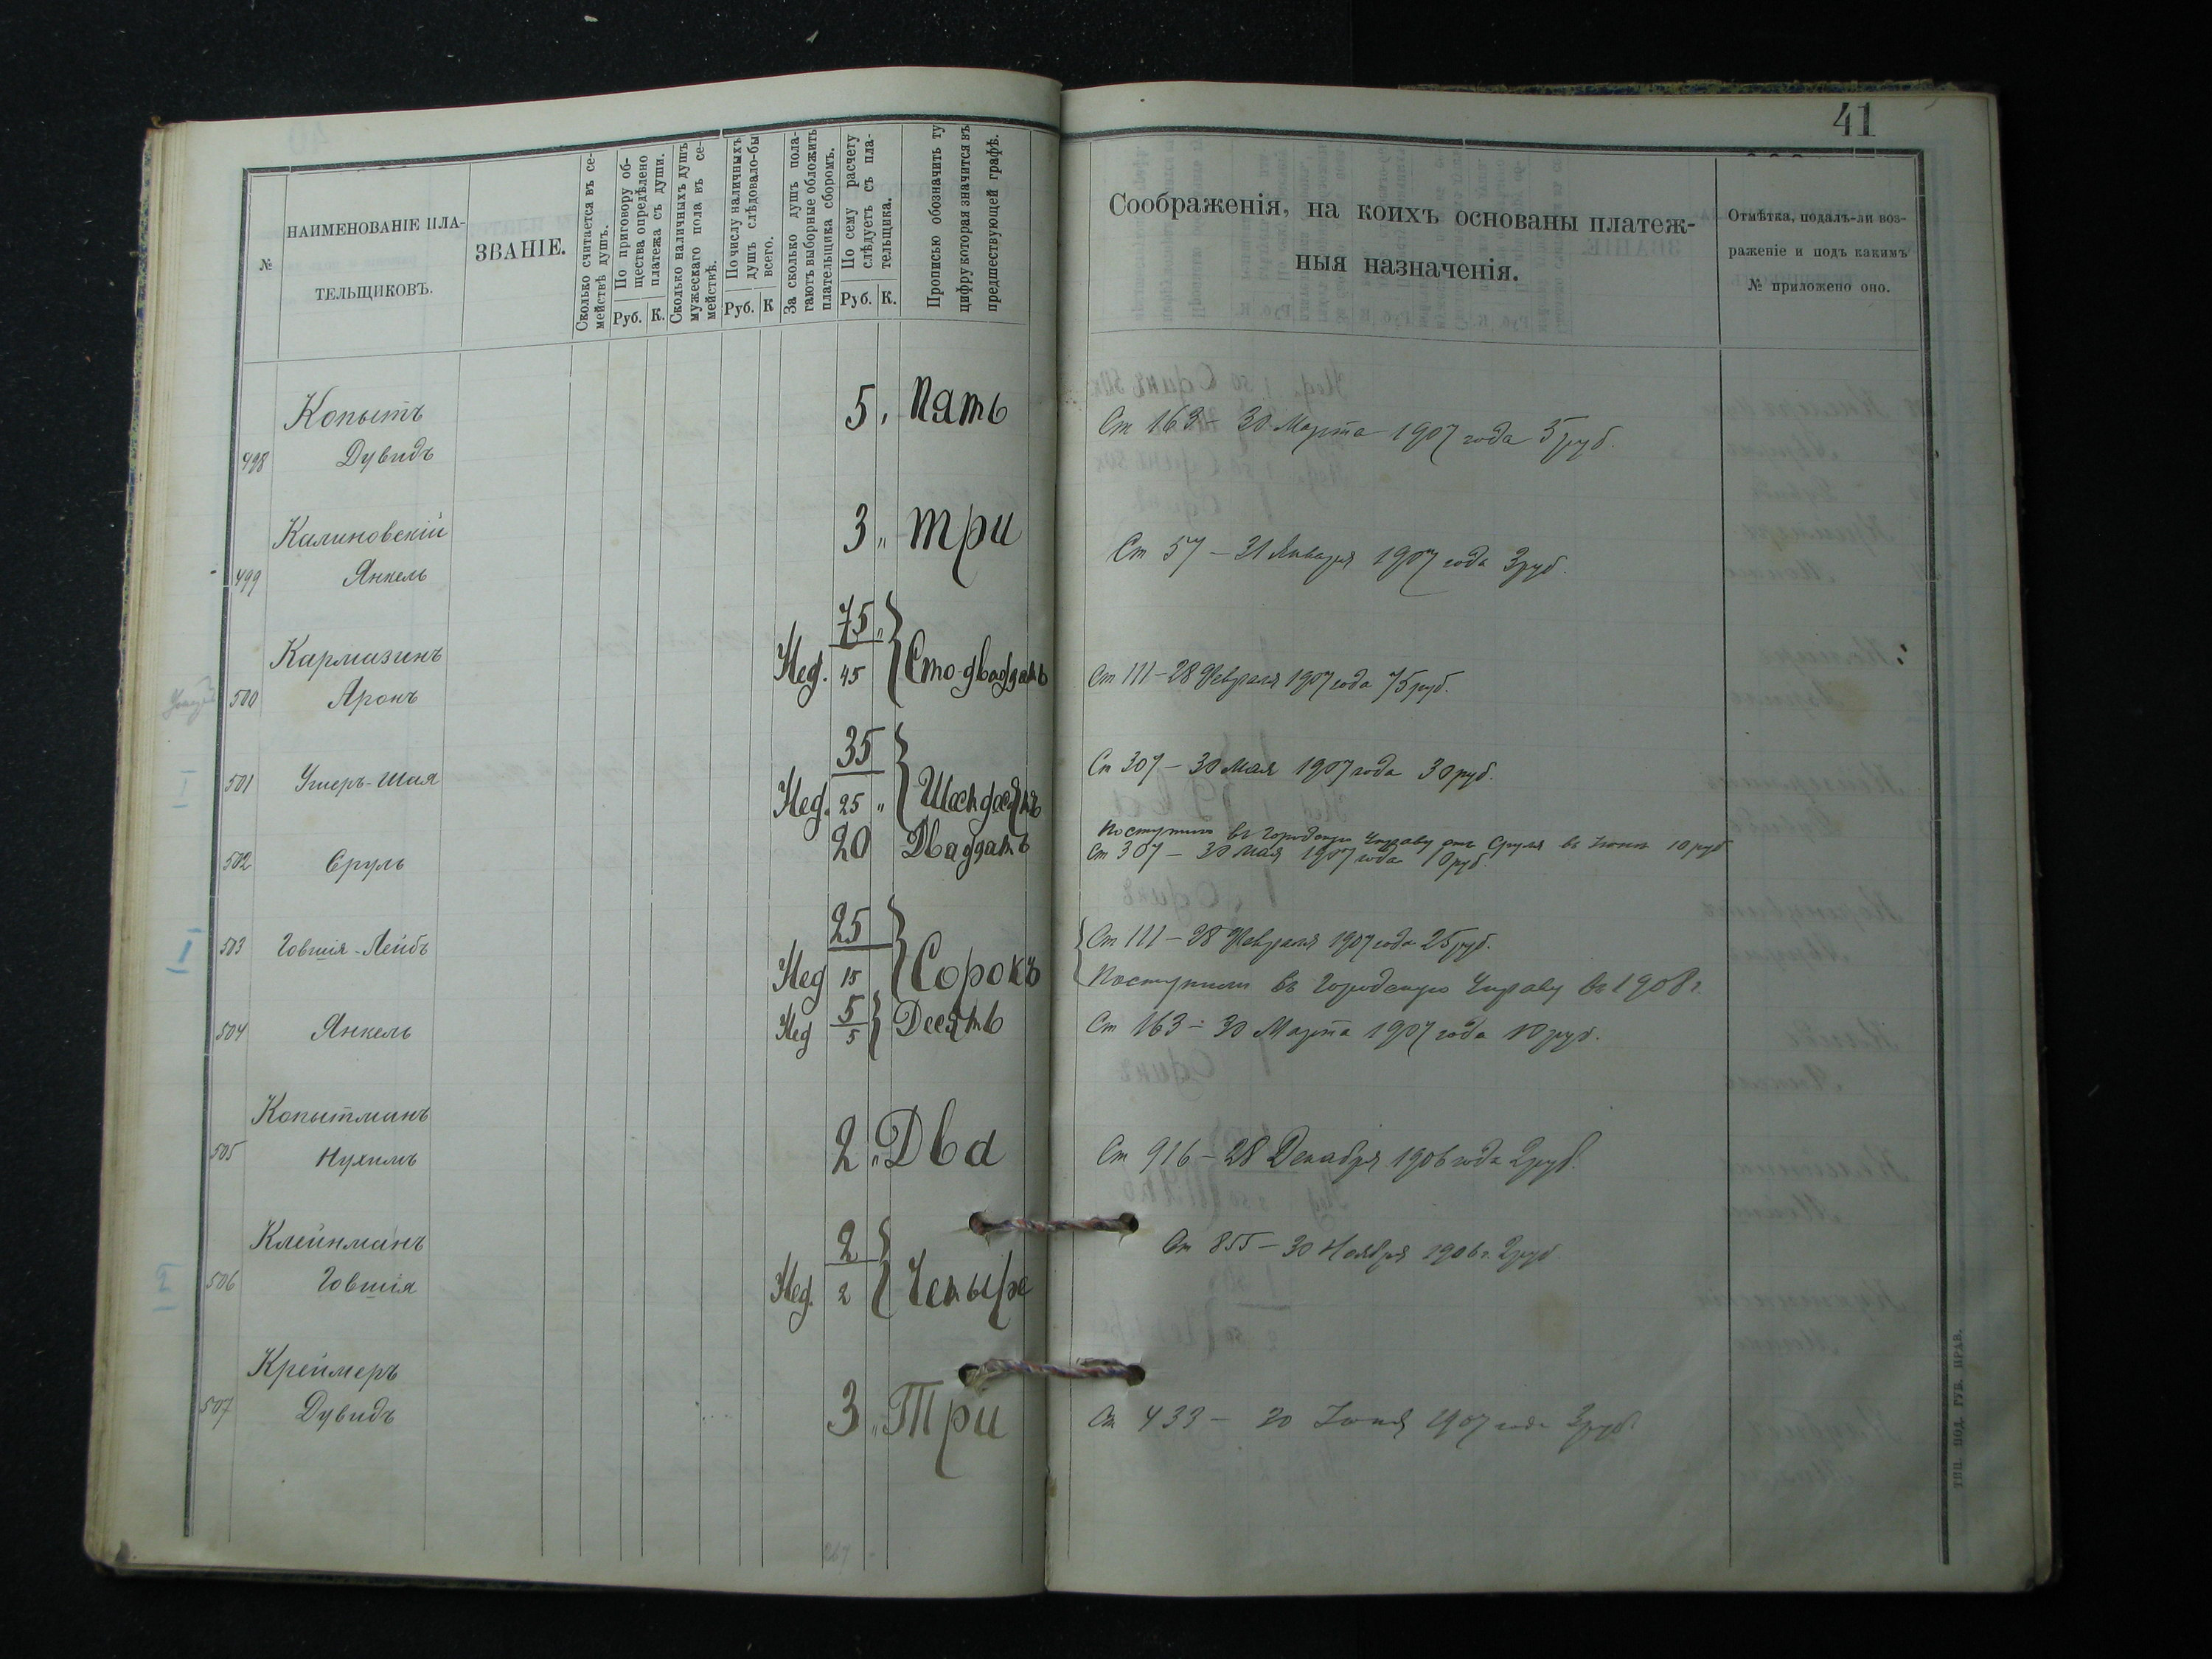 41
№
НАИМЕНОВАНІЕ ПЛА-
ТЕЛЬЩИКОВЪ.
ЗВАНІЕ.
Сколько считается въ се-
мействѣ душъ.
По приговору об-
щества опредѣлено
платежа съ души.
Руб. К.
Сколько наличныхъ душъ
мужескаго пола въ се-
мействѣ.
По числу наличныхъ
душъ слѣдовало-бы
всего.
Руб. К
За сколько душъ пола-
гаютъ выборные обложить
плательщика сборомъ.
По сему расчету
слѣдуетъ съ пла-
тельщика.
Руб. К.
Прописью обозначить ту
цифру которая значится въ
предшествующей графѣ.
Соображенія, на коихъ основаны платеж-
ныя назначенія.
Отмѣтка, подалъ-ли воз-
раженіе и подъ какимъ
№ приложено оно.
Копытъ 5 „ Пять
498 Дувидъ Ст 163 – 30 Марта 1907 года 5 руб.
Калиновскій 3 „ Три
499 Янкель Ст 57 – 31 Января 1907 года 3 руб.
75 „
Кармазинъ Нед. 45 Сто двадцать
500 Аронъ Ст 111 – 28 Февраля 1907 года 75 руб.
35
501 Ушеръ-Шая Нед. 25 „ Шестьдесятъ Ст 307 – 30 Мая 1907 года 30 руб.
Поступило въ Городскую Управу отъ Сруля въ 10 руб
502 Сруль 20 Двадцать Ст 307 – 30 Мая 1907 года 10 руб.
25
503 Говшія-Лейбъ Нед 15 Сорокъ Ст 111 – 28 Февраля 1907 года 25 руб.
Поступили въ Городскую Управу въ 1908 г.
5
504 Янкель Нед 5 Десять Ст 163 – 30 Марта 1907 года 10 руб.
Копытманъ
505 Нухимъ 2 „ Два Ст 916 – 28 Декабря 1906 года 2 руб.
Клейнманъ 2 Ст 855 – 30 Ноября 1906 г. 2 руб
506 Говшія Нед. 2 Четыре
Креймеръ
507 Дувидъ 3 „ Три Ст 433 – 20 Іюня 1907 года 3 руб.
267
ТИП. ПОД. ГУБ. ПРАВ.